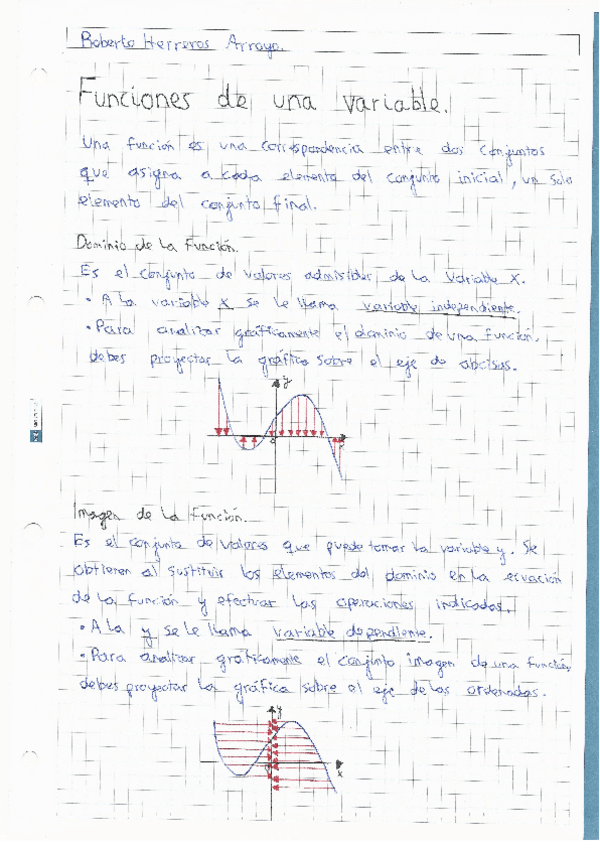 Roberto Herreros Arroyo.
Funciones de una variable.
Una función es una correspondencia entre dos conjuntos
que asigna a cada elemento del conjunto inicial, un solo
elemento del conjunto final.
Dominio de la Función.
Es el conjunto de valores admisibles de la variable x.
• A la variable x se le llama variable independiente.
• Para analizar gráficamente el dominio de una función,
debes proyectar la gráfica sobre el eje de abcisas.
y
x
Imagen de la Función.
Es el conjunto de valores que puede tomar la variable y. Se
obtienen al sustituir los elementos del dominio en la ecuación
de la función y efectuar las operaciones indicadas.
• A la y se le llama variable dependiente.
• Para analizar gráficamente el conjunto imagen de una función,
debes proyectar la gráfica sobre el eje de las ordenadas.
y
x